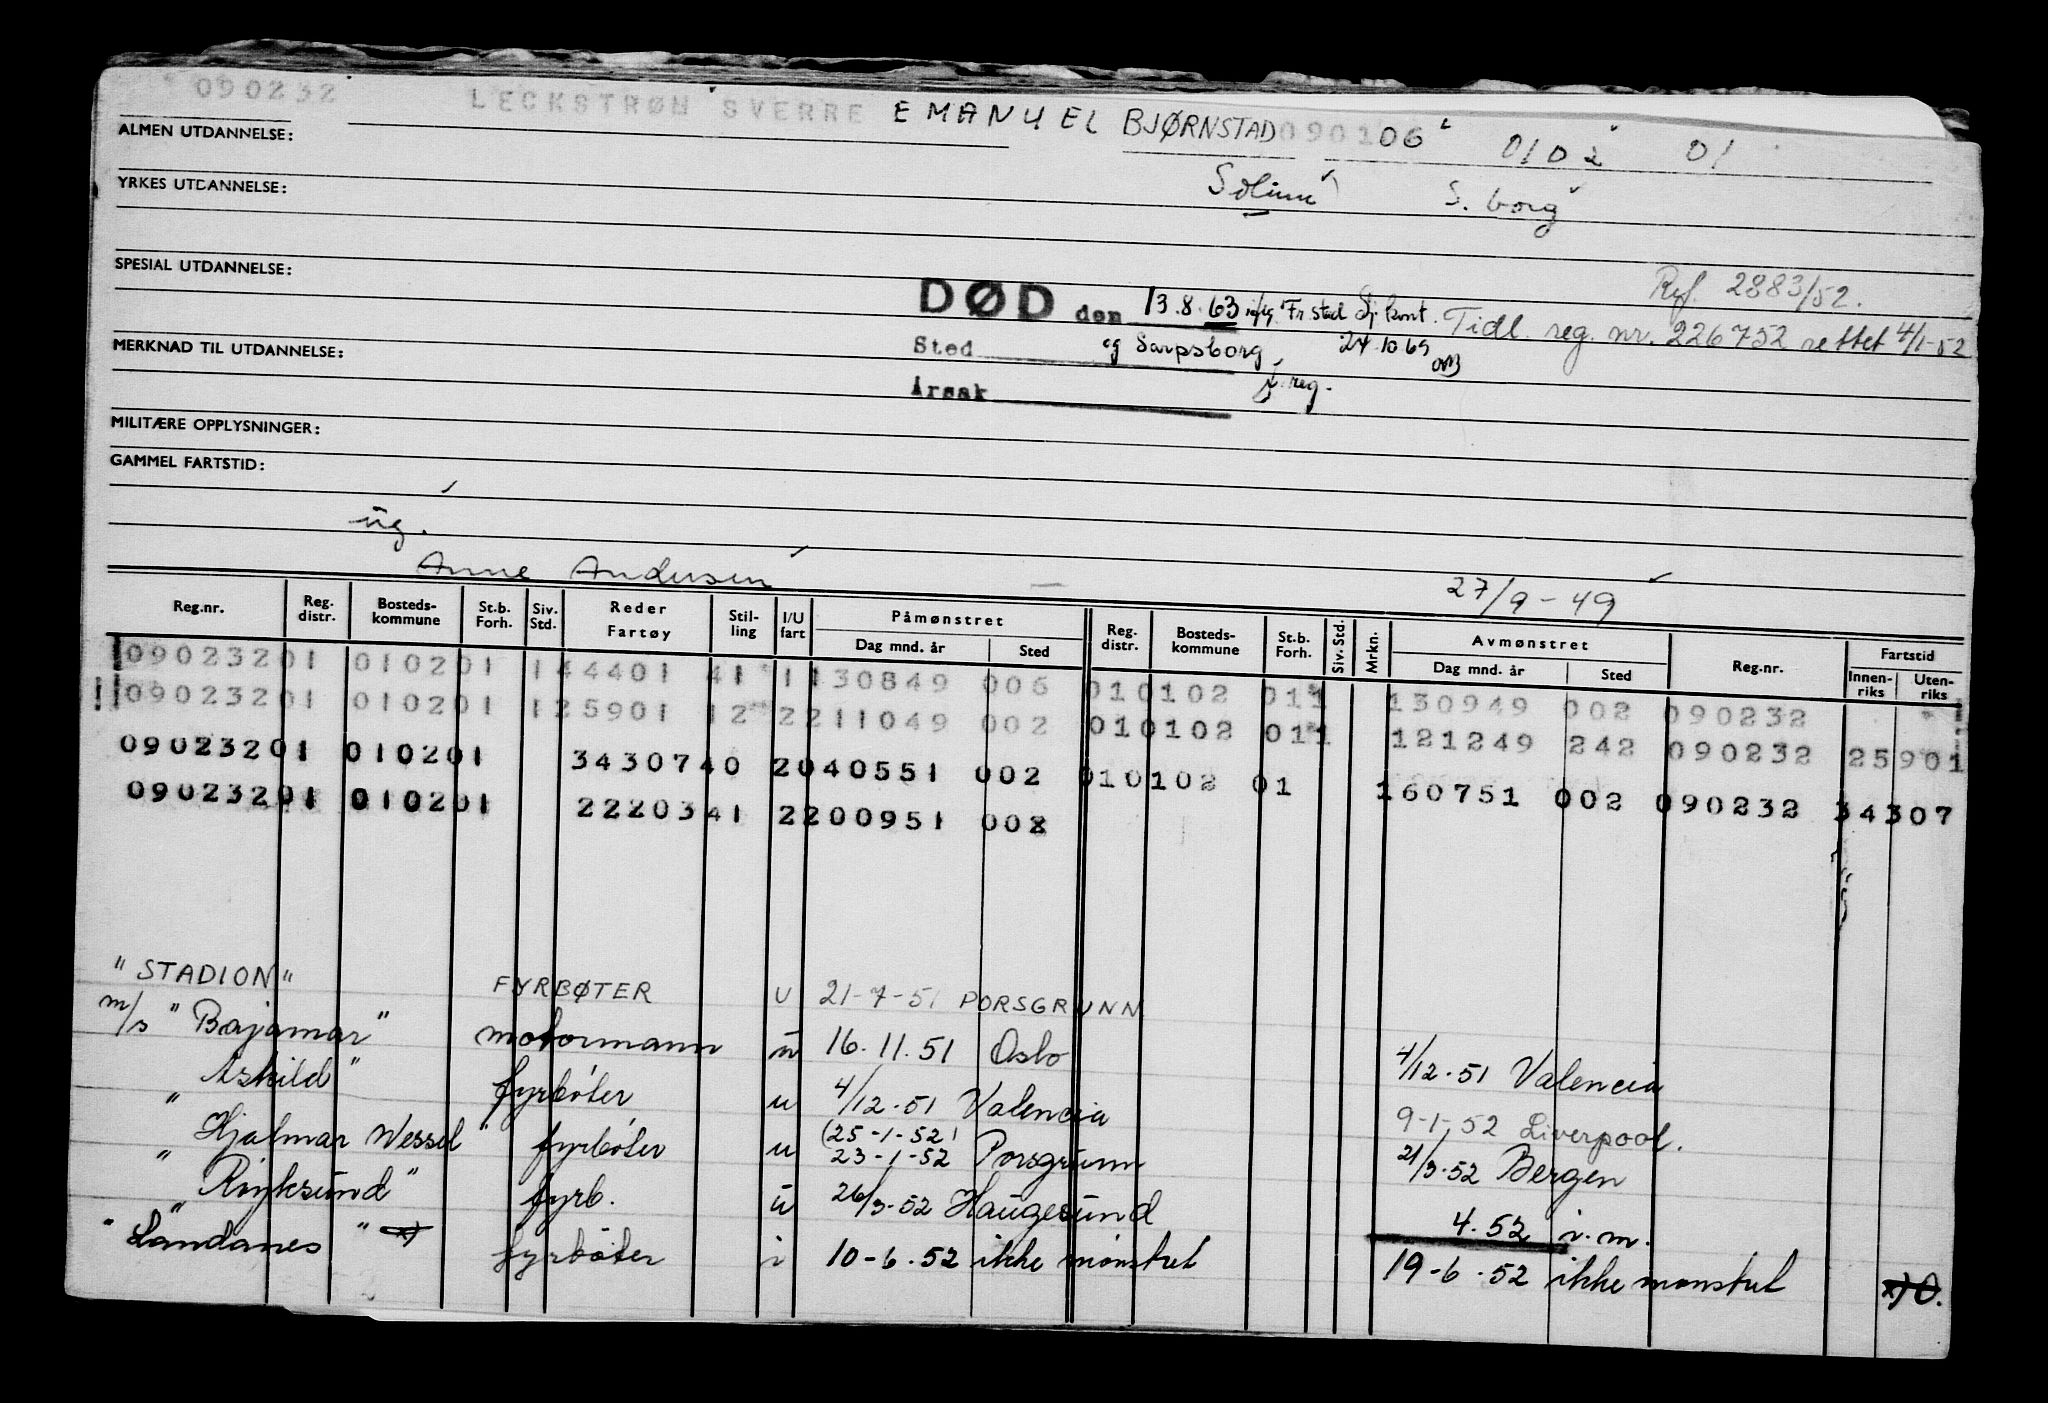 090232 LECKSTRØM SVERRE EMANUEL BJØRNSTAD 090106 0102 01
ALMEN UTDANNELSE:
S. borg
YRKES UTDANNELSE:
SPESIAL UTDANNELSE:
Ref. 2883/52.
DØD den 13.8.63 iflg. Fr.stad Sj.kont. Tidl. reg. nr. 226752 rettet 4/1-52
MERKNAD TIL UTDANNELSE:
Sted og Sarpsborg 24.10 69
f.reg.
Årsak
MILITÆRE OPPLYSNINGER:
GAMMEL FARTSTID:
ug.
Anne Andersen — 27/9-49
Reg.nr. Reg. distr. Bosteds-kommune St.b. Forh. Siv. Std. Reder Fartøy Stil-ling I/U fart Påmønstret Dag mnd. år Sted Reg. distr. Bosteds-kommune St.b. Forh. Siv. Std. Mrkn. Avmønstret Dag mnd. år Sted Reg.nr. Fartstid Innen-riks Uten-riks
09023201 010201 144401 41 1130849 006 010102 011 130949 002 090232
09023201 010201 125901 12 2211049 002 010102 011 121249 242 090232 25901
09023201 010201 3430740 2040551 002 010102 01 160751 002 090232 34307
09023201 010201 2220341 2200951 002
"STADION" FYRBØTER U 21-7-51 PORSGRUNN
m/s "Bajamar" motormann u 16.11.51 Oslo 4/12.51 Valencia
" Askild" fyrbøter u 4/12.51 Valencia 9-1-52 Liverpool.
" Hjalmar Wessel" fyrbøter u (25-1-52) 23-1-52 Porsgrunn 21/3.52 Bergen
" Røyksund" fyrb. u 26/3-52 Haugesund 4.52 i.m.
"Landanes" x) fyrbøter i 10-6.52 ikke mønstret 19-6.52 ikke mønstret x) O.